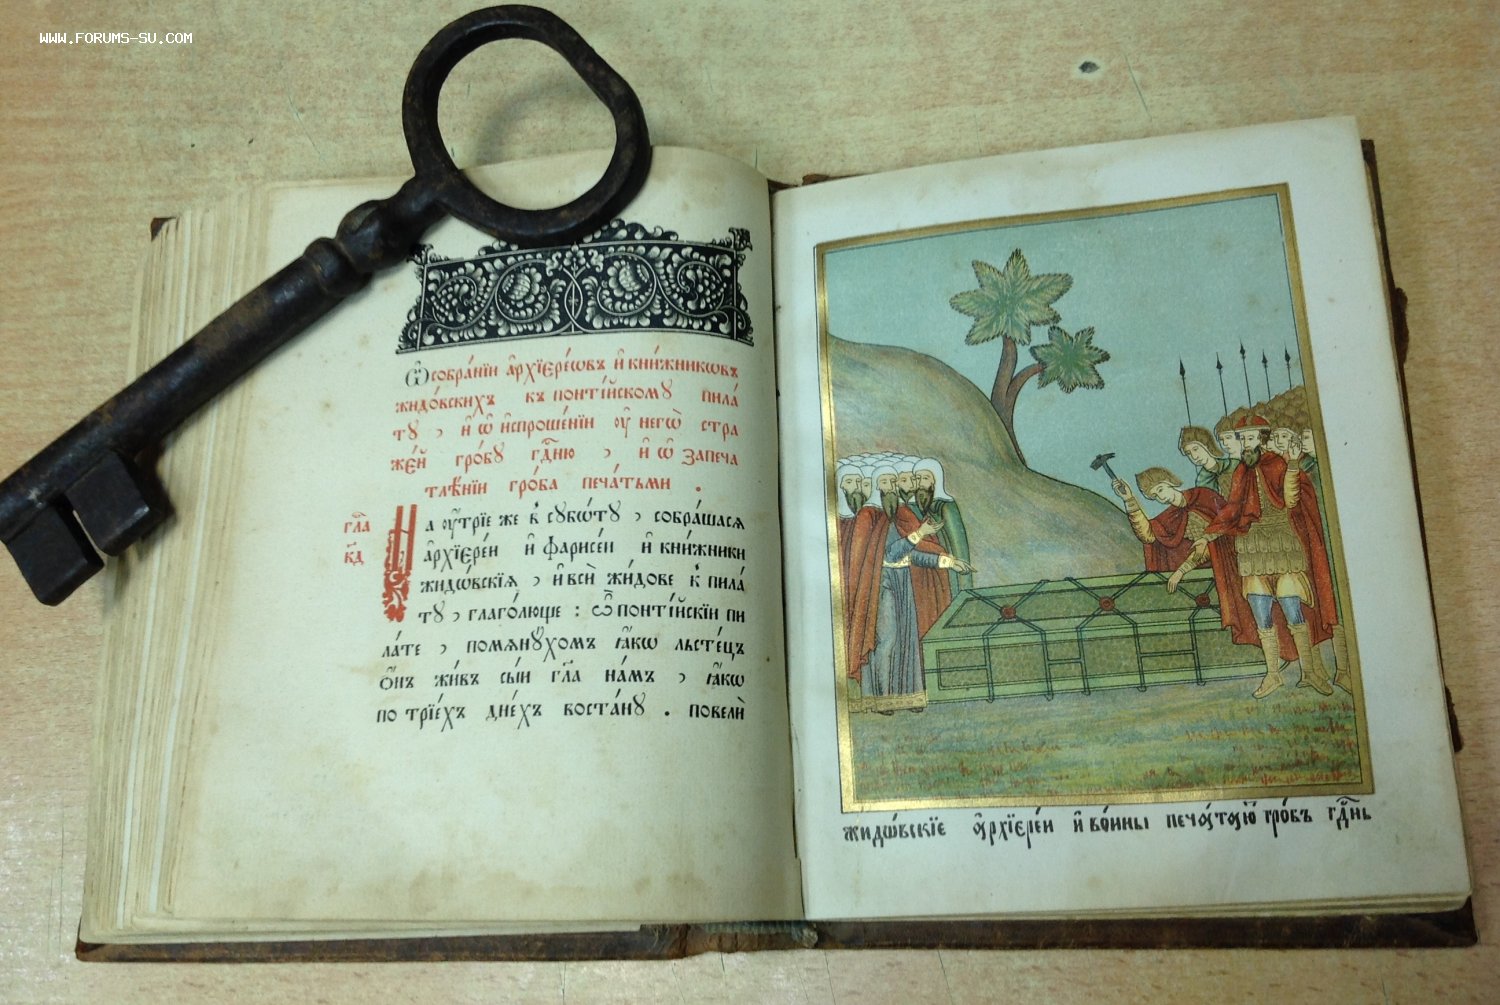 WWW.FORUMS-SU.COM
Ѽ собра́нїи а҆рхїере́ѡвъ и҆ кни́жникѡвъ
жидо́вскихъ къ понті́йскомꙋ пила́
тꙋ , и҆ ѡ҆ и҆спроше́нїи ᲂу҆ негѡ̀ стра
же́й гро́бꙋ гдⷭ҇ню , и҆ ѡ҆ запеча
тлѣ́нїи гро́ба печа́тьми .
гла̀
к҃д
На ᲂу҆́трїе же в̾ сꙋбѡ́тꙋ , собра́шасѧ
а҆рхїере́и и҆ фарисе́и и҆ кни́жники
жидѡ́вскїѧ , и҆ всѝ жи́дове к̾ пила́
тꙋ , глаго́люще : ѽ понті́йскїи пи
ла́те , помѧнꙋ́хомъ ꙗ҆́кѡ льсте́цъ
ѻ҆́нъ жи́въ сы́и гл҃а на́мъ , ꙗ҆́кѡ
по трїе́хъ дне́хъ воста́нꙋ . повелѝ
жидѡ́вскїе а҆рхїере́и и҆ во́ины печа́таютъ гро́бъ гдⷭ҇нь